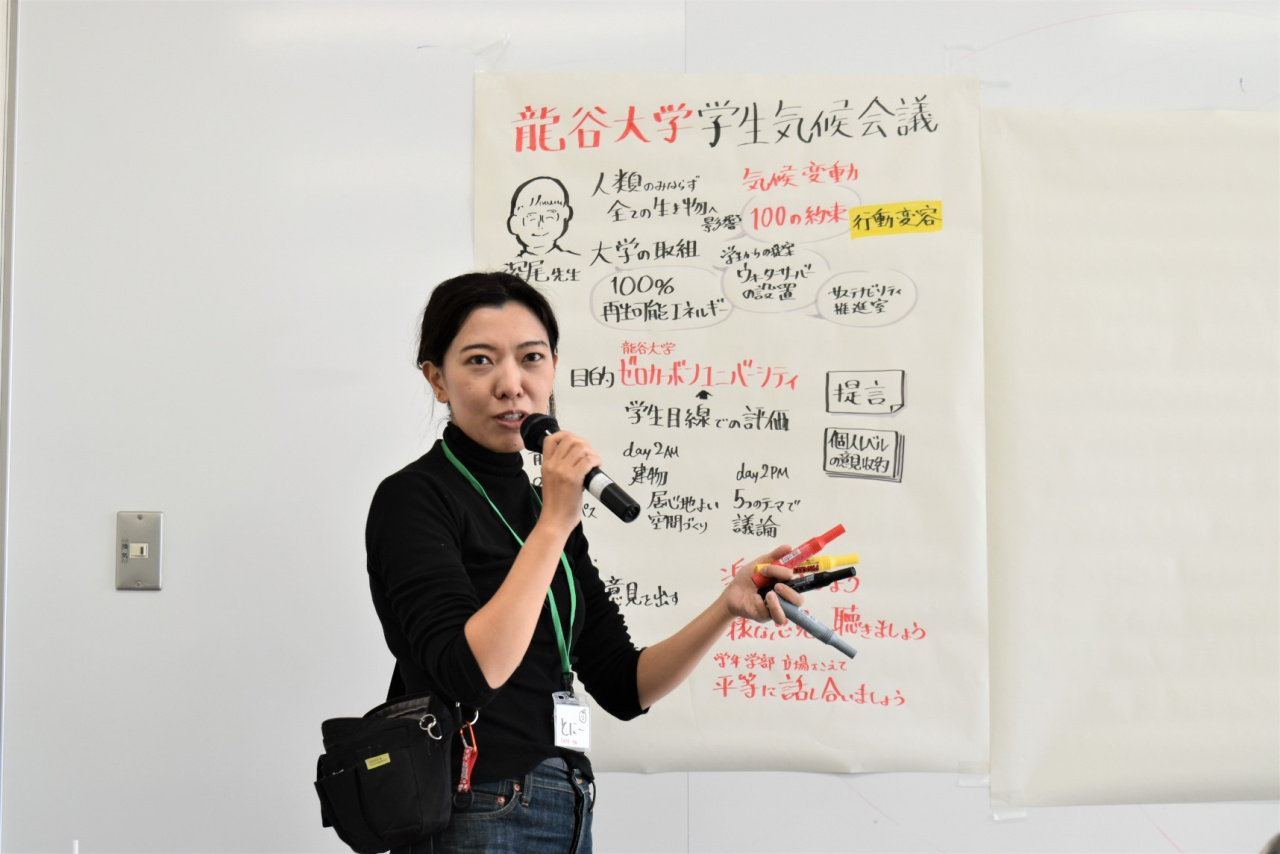 龍谷大学学生気候会議
人類のみならず
全ての生き物へ
影響
気候変動
100の約束
行動変容
深尾先生
大学の取組
100%
再生可能エネルギー
学生からの提案
ウォーターサーバー
の設置
サステナビリティ
推進室
龍谷大学
目的 ゼロカーボンユニバーシティ
学生目線での評価
提言
個人レベル
の意見収約
day2AM
建物
居心地よい
空間づくり
day2PM
5つのテーマで
議論
意見を出す
聴きましょう
学年 学部 立場をこえて
平等に話し合いましょう
とにー